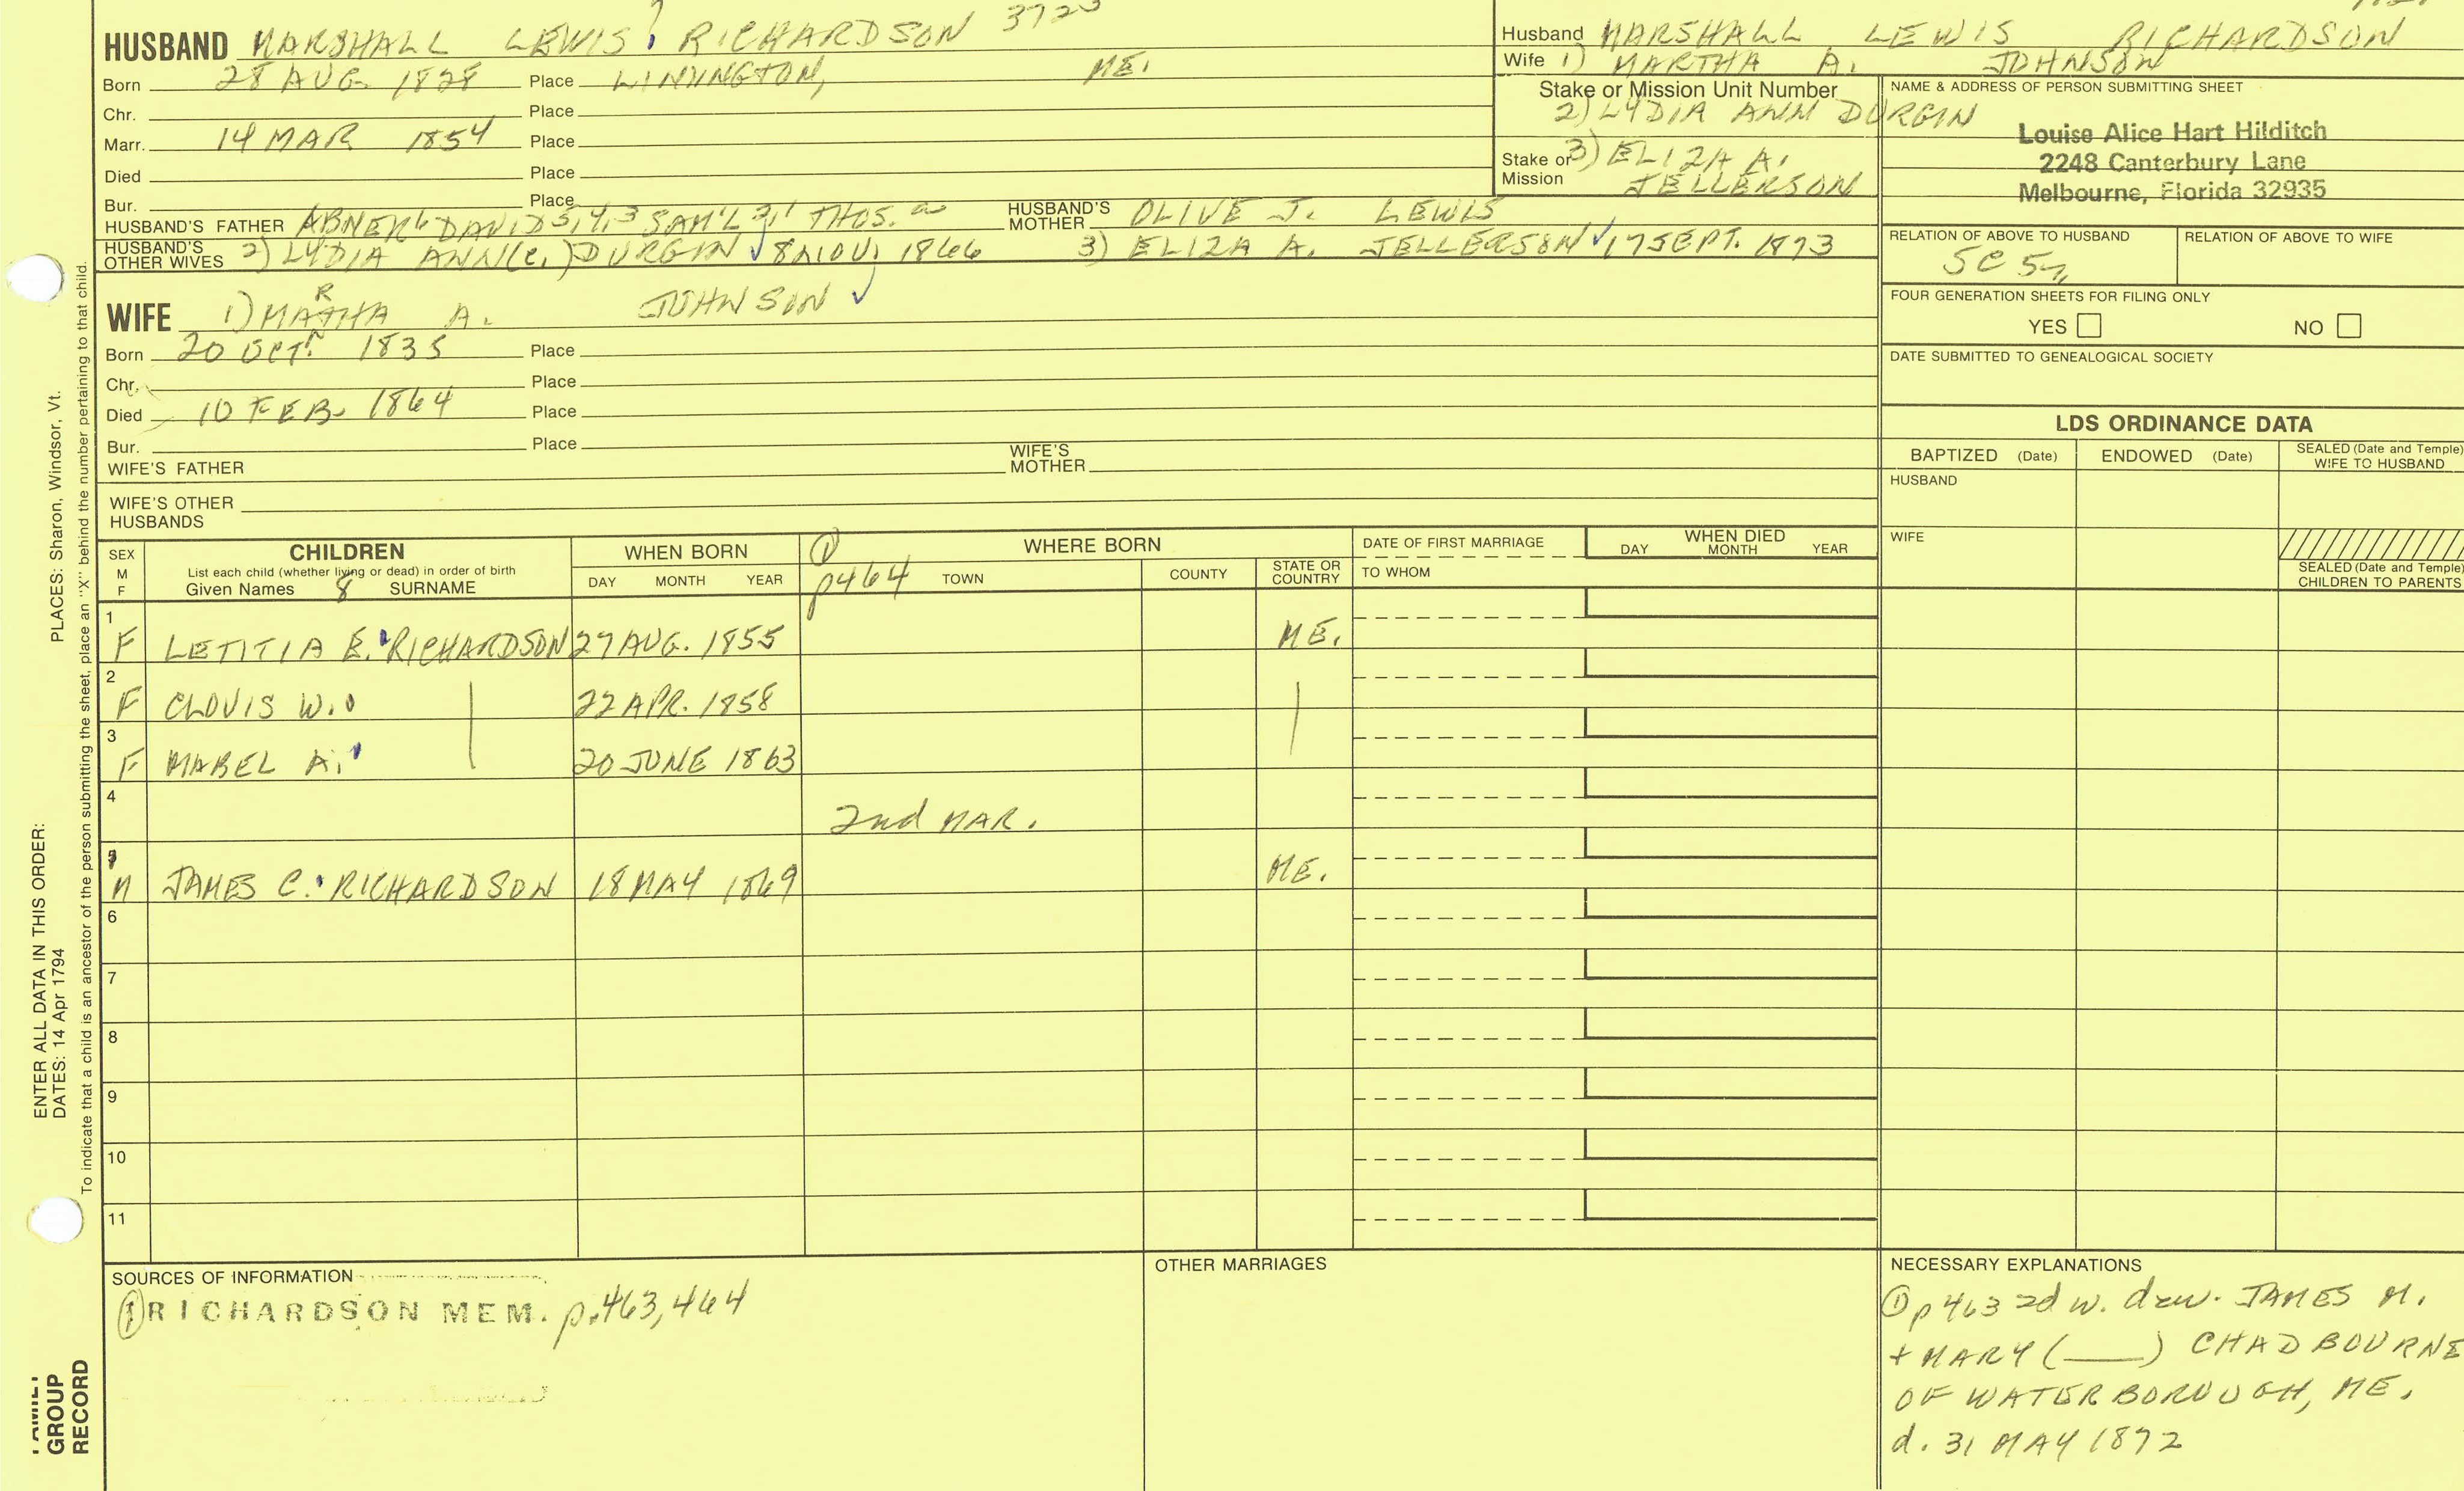 HUSBAND MARSHALL LEWIS 7 RICHARDSON 3723
Born 28 AUG. 1828 Place LIMINGTON, ME.
Chr. Place
Marr. 14 MAR 1854 Place
Died Place
Bur. Place
HUSBAND'S FATHER ABNER 6 DAVID 5,4,3 SAM'L 2,1 THOS. HUSBAND'S MOTHER OLIVE J. LEWIS
HUSBAND'S OTHER WIVES 2) LYDIA ANN (C.) DURGIN ✓ 8 NOV. 1866 3) ELIZA A. JELLERSON ✓ 17 SEPT. 1873
Husband MARSHALL LEWIS RICHARDSON
Wife 1) MARTHA A. JOHNSON
Stake or Mission Unit Number
2) LYDIA ANN DURGIN
Stake or Mission 3) ELIZA A. JELLERSON
NAME & ADDRESS OF PERSON SUBMITTING SHEET
Louise Alice Hart Hilditch
2248 Canterbury Lane
Melbourne, Florida 32935
RELATION OF ABOVE TO HUSBAND RELATION OF ABOVE TO WIFE
5C
FOUR GENERATION SHEETS FOR FILING ONLY
YES NO
DATE SUBMITTED TO GENEALOGICAL SOCIETY
WIFE 1) MARTHA A. JOHNSON ✓
Born 20 OCT. 1835 Place
Chr. Place
Died 10 FEB. 1864 Place
Bur. Place
WIFE'S FATHER WIFE'S MOTHER
WIFE'S OTHER HUSBANDS
LDS ORDINANCE DATA
BAPTIZED (Date) ENDOWED (Date) SEALED (Date and Temple) WIFE TO HUSBAND
HUSBAND
WIFE
SEALED (Date and Temple) CHILDREN TO PARENTS
SEX M F
CHILDREN
List each child (whether living or dead) in order of birth
Given Names 8 SURNAME
WHEN BORN
DAY MONTH YEAR
① p464
WHERE BORN
TOWN COUNTY STATE OR COUNTRY
DATE OF FIRST MARRIAGE
TO WHOM
WHEN DIED
DAY MONTH YEAR
1 F LETITIA E. RICHARDSON 27 AUG. 1855 ME.
2 F CLOVIS W. 22 APR. 1858
3 F MABEL A. 20 JUNE 1863
4 2nd MAR.
5 M JAMES C. RICHARDSON 18 MAY 1869 ME.
6
7
8
9
10
11
SOURCES OF INFORMATION
① RICHARDSON MEM. p.463,464
OTHER MARRIAGES
NECESSARY EXPLANATIONS
① p463 2d w. dau. JAMES M.
+ MARY (___) CHADBOURNE
OF WATERBOROUGH, ME.
d. 31 MAY 1872
ENTER ALL DATA IN THIS ORDER:
DATES: 14 Apr 1794 PLACES: Sharon, Windsor, Vt.
To indicate that a child is an ancestor of the person submitting the sheet, place an "X" behind the number pertaining to that child.
FAMILY
GROUP
RECORD